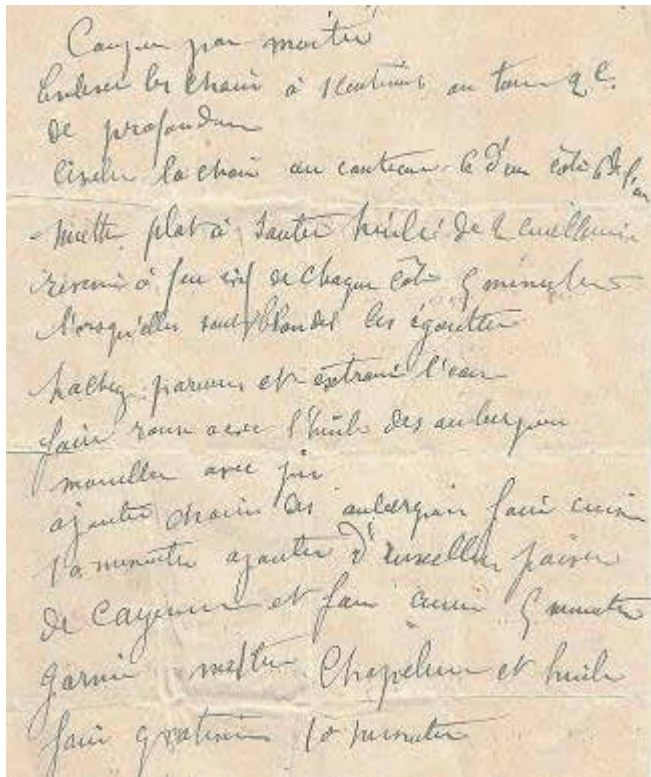 Couper par moitié
Enlever les chairs à 1 centimètre au tour 2 c.
de profondeur
ciseler la chair au couteau d'un côté
mettre plat à sauter huilé de 2 cuillerées
revenir à feu vif de chaque côté 5 minutes
lorsqu'elles sont blondes les égoutter
hachez parures et extraire l'eau
faire roux avec l'huile des aubergines
mouiller avec jus
ajouter chairs des aubergines faire cuire
10 minutes ajouter d'uxelles poivre
de Cayenne et faire cuire 5 minutes
garnir mettre Chapelure et huile
faire gratiner 10 minutes